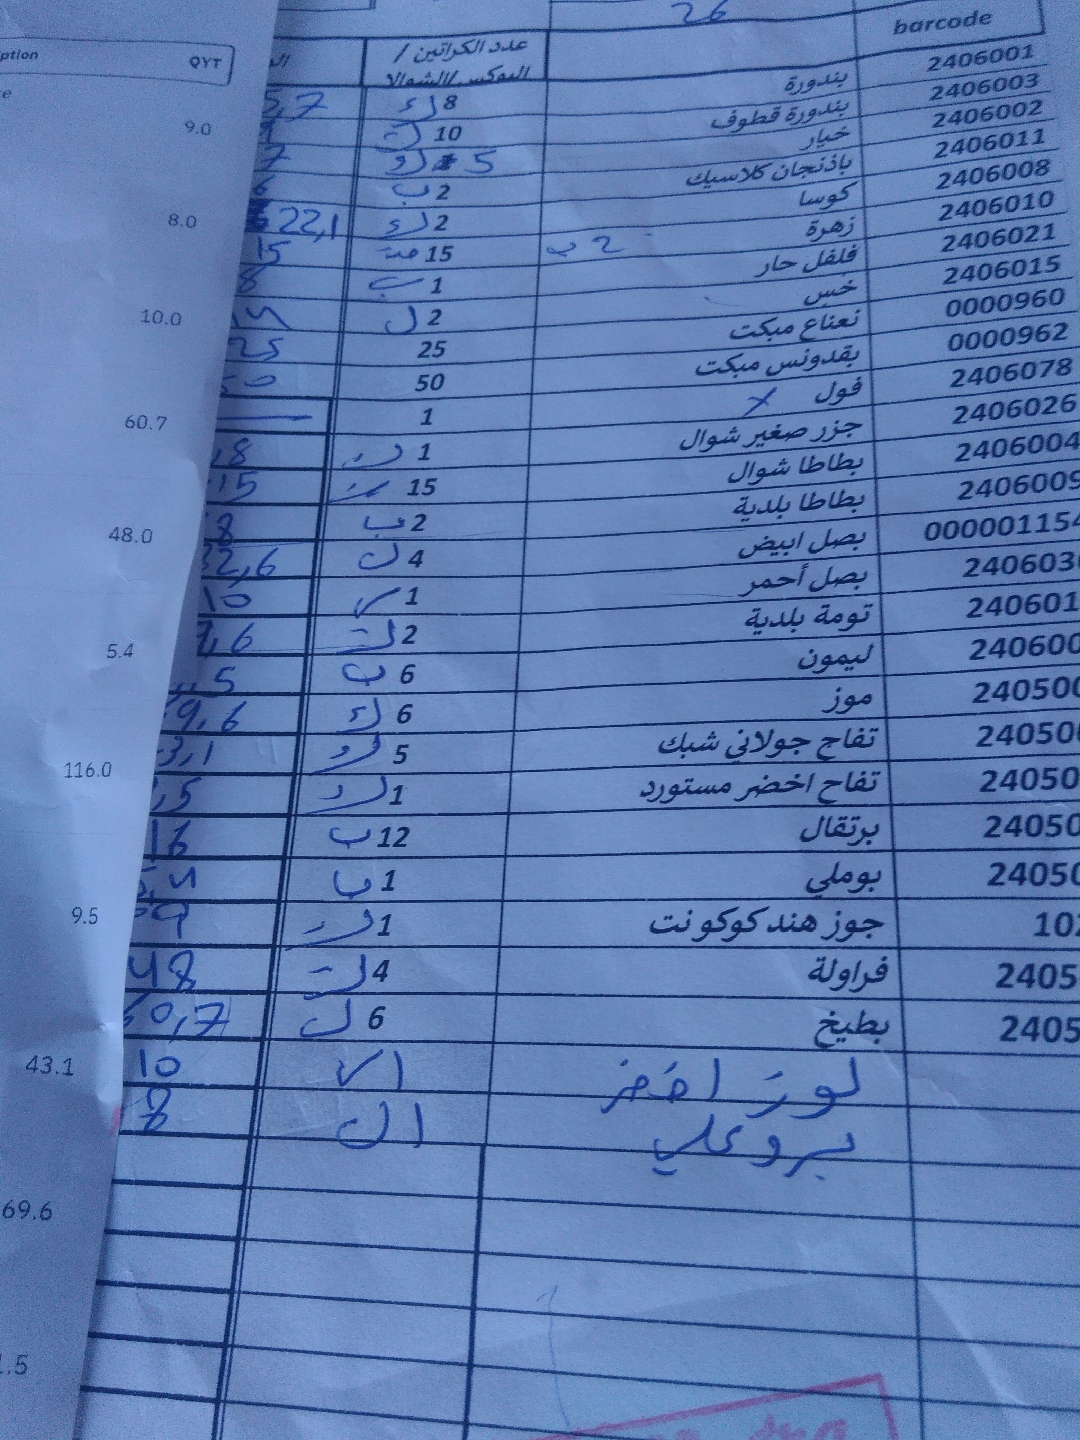 26
barcode
عدد الكراتين /
البوكس/الشوالا
ption QYT
2406001 بندورة 8
2406003 بندورة قطوف 10
9.0
2406002 خيار 5 7
2406011 باذنجان كلاسيك 2 ب
2406008 كوسا 2 22,1
8.0
2406010 زهرة 2 ب 15 15
2406021 فلفل حار 1 8
2406015 خس 2
10.0
0000960 نعناع مبكت 25 25
0000962 بقدونس مبكت 50 50
2406078 فول x 1
60.7
2406026 جزر صغير شوال 1 ,8
2406004 بطاطا شوال 15 15
2406009 بطاطا بلدية 2 ب 8
48.0
000001154 بصل ابيض 4 32,6
240603 بصل أحمر 1 10
240601 تومة بلدية 2 7,6
5.4
240600 ليمون 6 ب ,5
240500 موز 6 9,6
24050 تفاح جولاني شبك 5 3,1
116.0
24050 تفاح اخضر مستورد 1 ,5
24050 برتقال 12 ب 16
24050 بوملي 1 ب
9.5
102 جوز هند كوكونت 1
2405 فراولة 4 48
2405 بطيخ 6 60,7
43.1
لوز اخضر 1 10
بروكلي 1 8
69.6
1.5